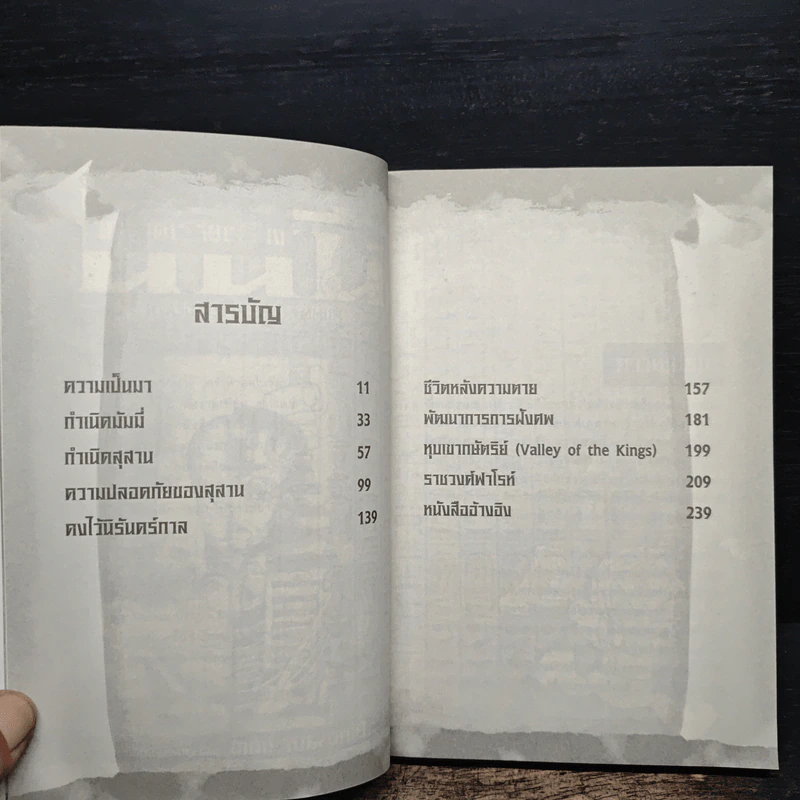 สารบัญ
ความเป็นมา 11
กำเนิดมัมมี่ 33
กำเนิดสุสาน 57
ความปลอดภัยของสุสาน 99
คงไว้นิรันดร์กาล 139
ชีวิตหลังความตาย 157
พัฒนาการการฝังศพ 181
หุบเขากษัตริย์ (Valley of the Kings) 199
ราชวงศ์ฟาโรห์ 209
หนังสืออ้างอิง 239